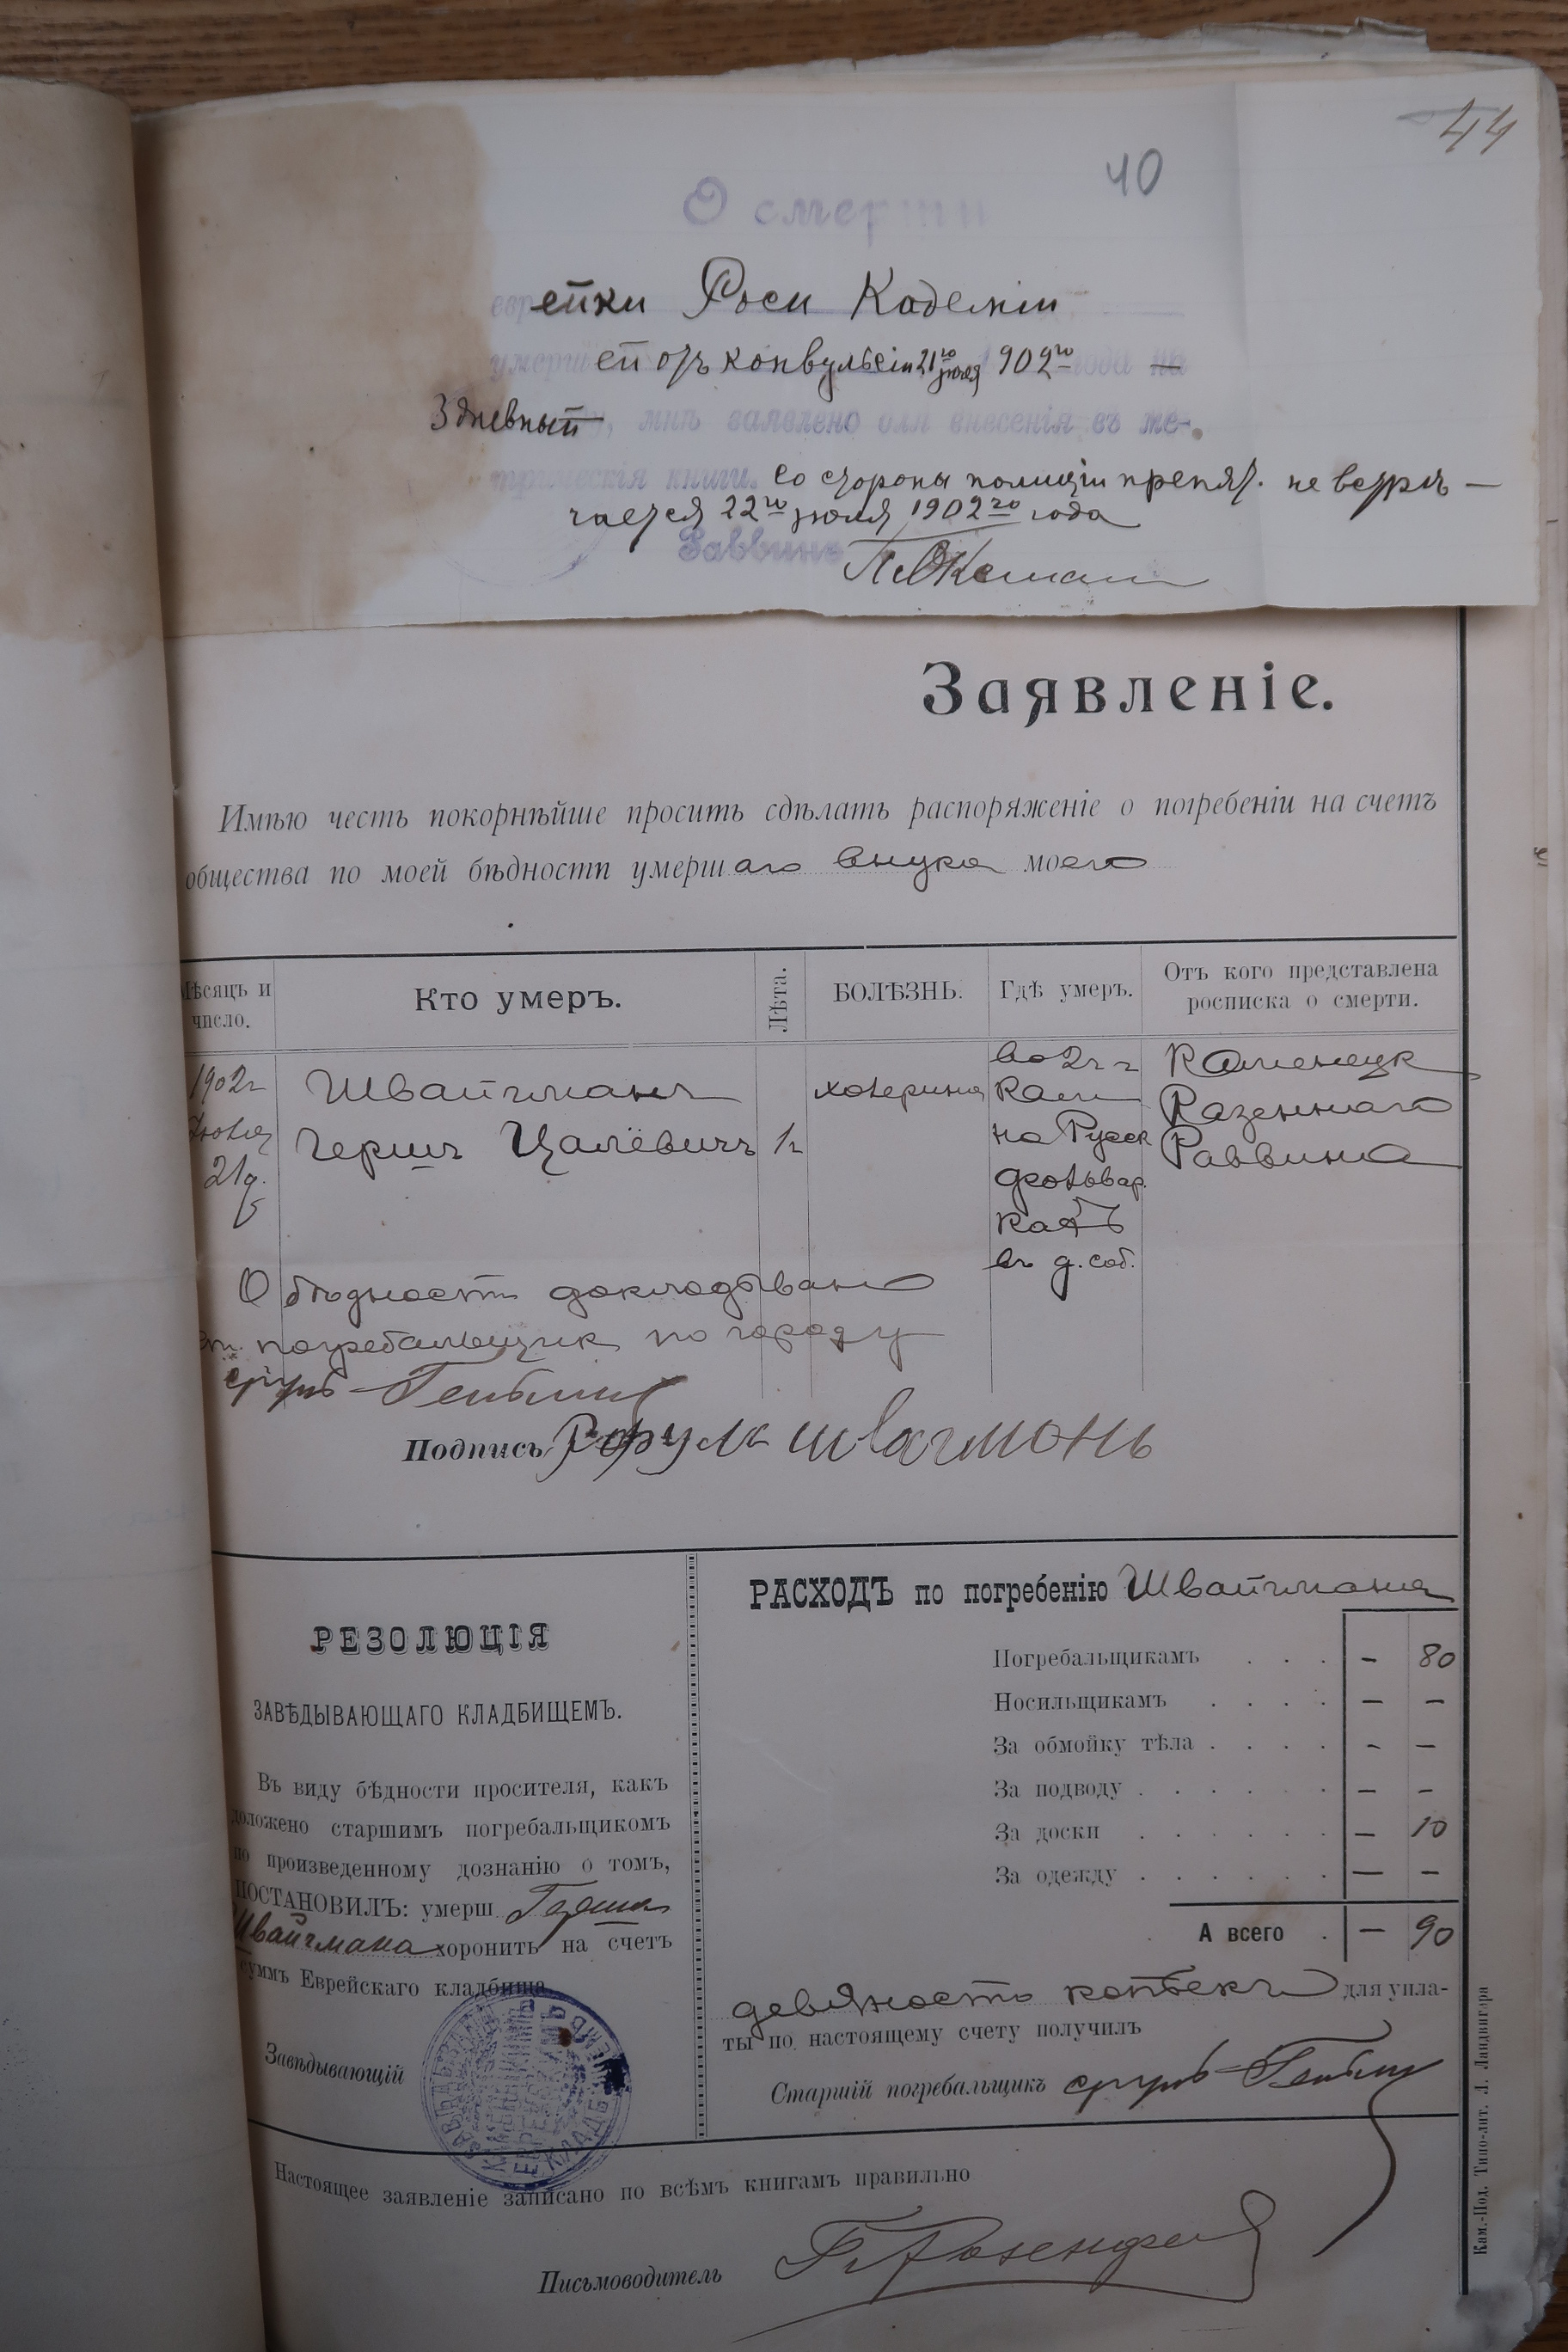 44
40
О смерти
еврейки Роси Кадемій
умершей отъ конвульсіи 21го іюля 1902го года на
3 дневный, мнѣ заявлено для внесенія въ ме-
трическія книги. Со стороны полиціи препят. не встрѣ-
чается 22го іюля 1902го года
Раввинъ
Заявленіе.
Имѣю честь покорнѣйше просить сдѣлать распоряженіе о погребеніи на счетъ
общества по моей бѣдности умершаго внука моего
Мѣсяцъ и число.
Кто умеръ.
Лѣта.
БОЛѢЗНЬ.
Гдѣ умеръ.
Отъ кого представлена росписка о смерти.
1902г
Іюля
21д.
Швайгманъ
Гершъ Цалёвичъ
1г
холерина
во 2ч г
Кам
на Русск
фольвар.
кахъ
въ д. соб.
Каменецк
Казеннаго
Раввина
О бѣдности докладывано
ст. погребальщик по городу
Подпись Швагмонь
РЕЗОЛЮЦІЯ
ЗАВѢДЫВАЮЩАГО КЛАДБИЩЕМЪ.
Въ виду бѣдности просителя, какъ
доложено старшимъ погребальщикомъ
по произведенному дознанію о томъ,
ПОСТАНОВИЛЪ: умерш Герша
Швайгмана хоронить на счетъ
суммъ Еврейскаго кладбища.
Завѣдывающій
РАСХОДЪ по погребенію Швайгмана
Погребальщикамъ . . . — 80
Носильщикамъ . . . . — —
За обмойку тѣла . . . . - —
За подводу . . . . . . — -
За доски . . . . . . — 10
За одежду . . . . . . — —
А всего . — 90
девяносто копѣекъ для упла-
ты по настоящему счету получилъ
Старшій погребальщикъ
Настоящее заявленіе записано по всѣмъ книгамъ правильно
Письмоводитель
Кам.-Под. Типо-лит. Л. Ландвигера